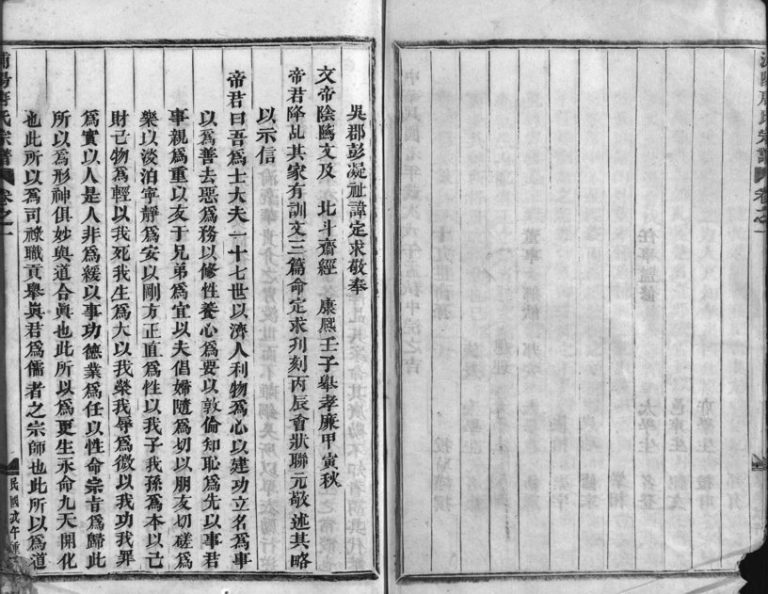 吳郡彭凝祉諱定求敬奉
文帝陰隲文及 北斗齋經 康熙壬子舉孝廉甲寅秋
帝君降乩其家有訓文三篇命定求刋刻丙辰會狀聯元敬述其略
以示信
帝君曰吾爲士大夫一十七世以濟人利物爲心以建功立名爲事
以爲善去惡爲務以修性養心爲要以敦倫知恥爲先以事君
事親爲重以友于兄弟爲宜以夫倡婦隨爲切以朋友切磋爲
樂以淡泊寧靜爲安以剛方正直爲性以我子我孫爲本以亡
財己物爲輕以我死我生爲大以我榮我辱爲微以我功我罪
爲實以人是人非爲緩以事功德業爲任以性命宗旨爲歸此
所以爲形神俱妙與道合眞也此所以爲更生永命九天開化
也此所以爲司祿職貢舉眞君爲儒者之宗師也此所以爲道
浦陽 氏宗譜 卷之一
民國戊午重